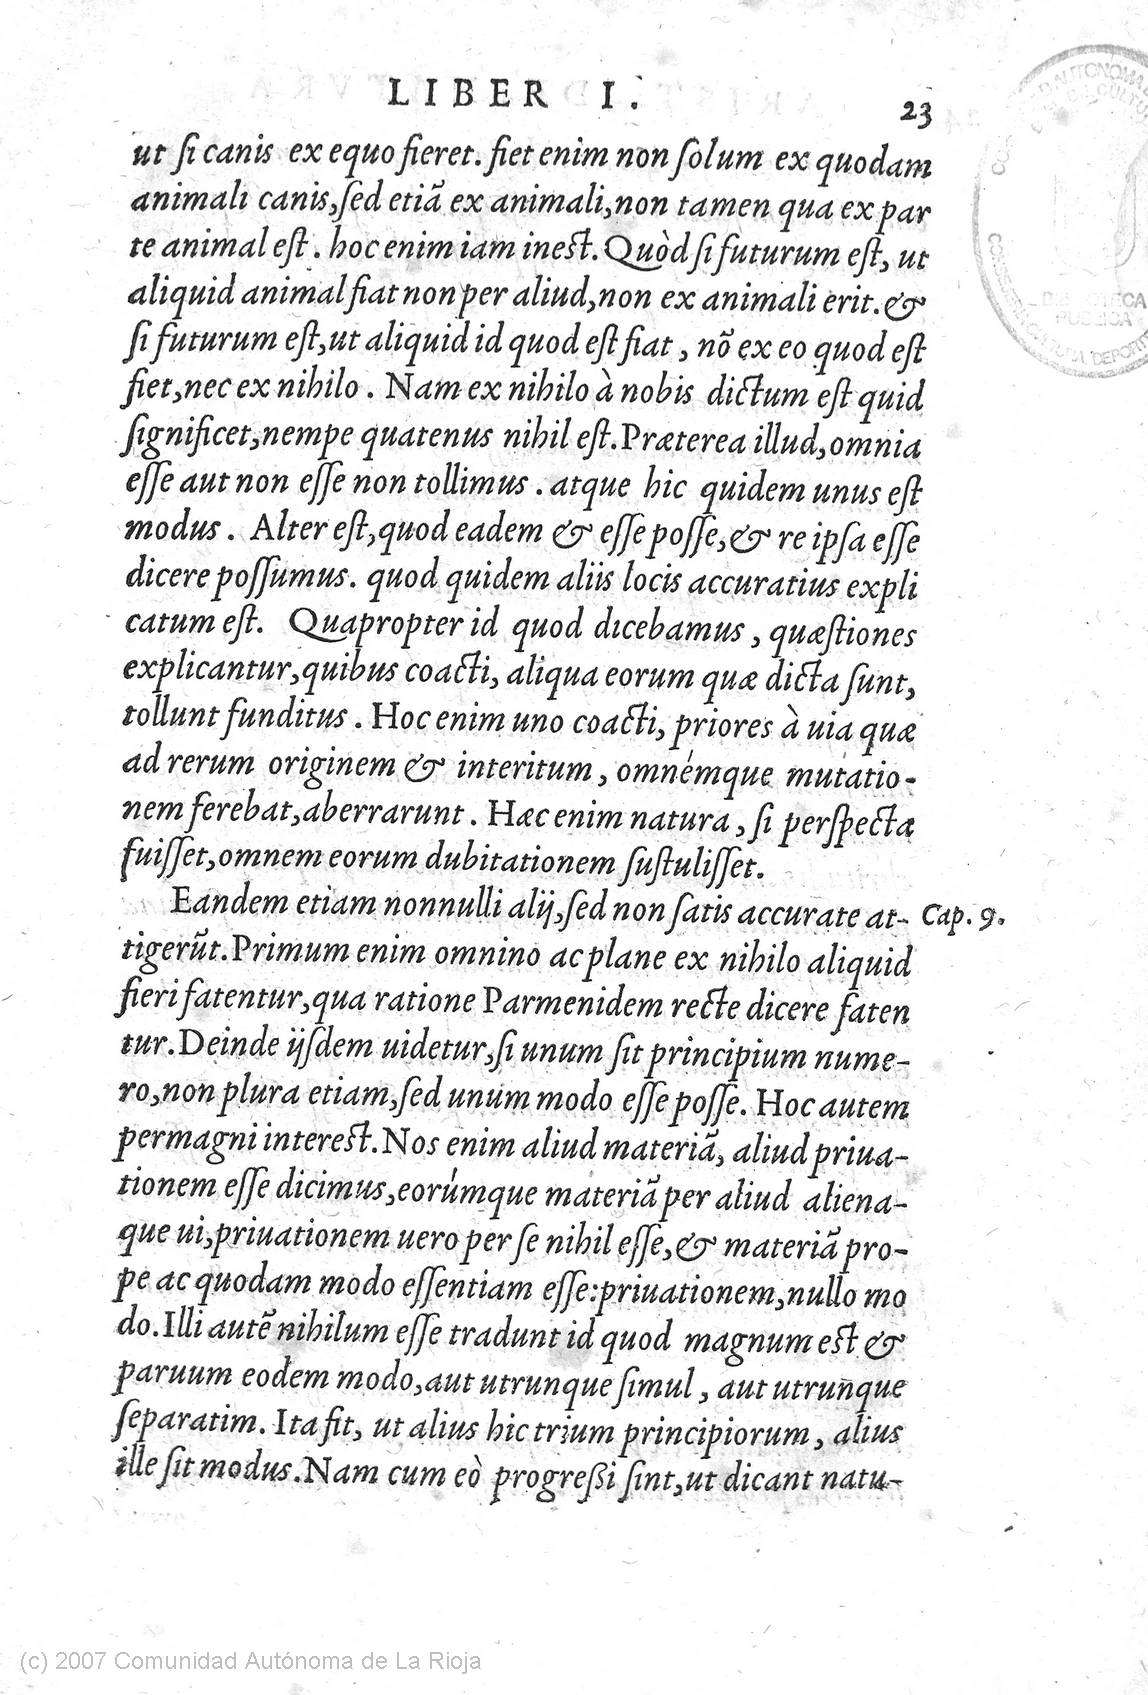 LIBER I.
23
ut ſi canis ex equo fieret. fiet enim non ſolum ex quodam
animali canis,ſed etiã ex animali,non tamen qua ex par
te animal eſt. hoc enim iam ineſt. Quòd ſi futurum eſt, ut
aliquid animal fiat non per aliud,non ex animali erit.&
ſi futurum eſt,ut aliquid id quod eſt fiat, nõ ex eo quod eſt
fiet,nec ex nihilo. Nam ex nihilo à nobis dictum eſt quid
ſignificet,nempe quatenus nihil eſt. Præterea illud,omnia
eſſe aut non eſſe non tollimus. atque hic quidem unus eſt
modus. Alter eſt,quod eadem & eſſe poſſe,& re ipſa eſſe
dicere poſſumus. quod quidem aliis locis accuratius expli
catum eſt. Quapropter id quod dicebamus, quæſtiones
explicantur,quibus coacti, aliqua eorum quæ dicta ſunt,
tollunt funditus. Hoc enim uno coacti, priores à uia quæ
ad rerum originem & interitum, omnémque mutatio-
nem ferebat,aberrarunt. Hæc enim natura, ſi perſpecta
fuiſſet,omnem eorum dubitationem ſuſtuliſſet.
Eandem etiam nonnulli alij,ſed non ſatis accurate at- Cap. 9.
tigerũt. Primum enim omnino ac plane ex nihilo aliquid
fieri fatentur,qua ratione Parmenidem recte dicere faten
tur. Deinde ijſdem uidetur,ſi unum ſit principium nume-
ro,non plura etiam,ſed unum modo eſſe poſſe. Hoc autem
permagni intereſt. Nos enim aliud materiã, aliud priua-
tionem eſſe dicimus,eorúmque materiã per aliud aliena-
que ui,priuationem uero per ſe nihil eſſe,& materiã pro-
pe ac quodam modo eſſentiam eſſe:priuationem,nullo mo
do. Illi autẽ nihilum eſſe tradunt id quod magnum eſt &
paruum eodem modo,aut utrunque ſimul, aut utrunque
ſeparatim. Ita fit, ut alius hic trium principiorum, alius
ille ſit modus. Nam cum eò progreßi ſint,ut dicant natu-
(c) 2007 Comunidad Autónoma de La Rioja